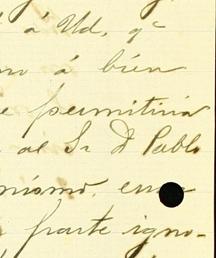 á Ud, qe
no á bien
e permitiria
al Sr D Pablo
nismo, en
parte igno-